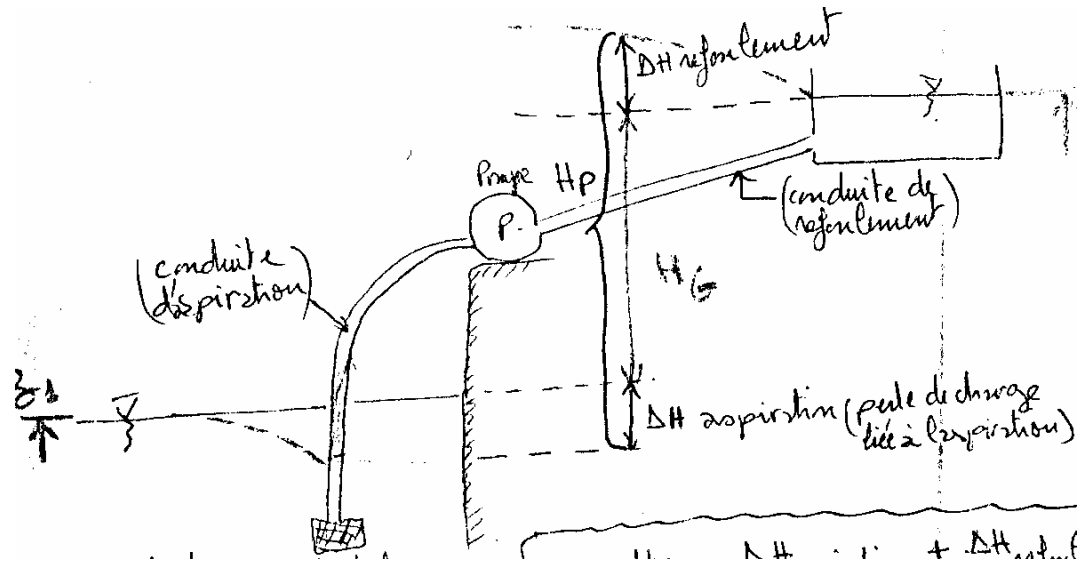 ΔH refoulement
Pompe
HP
P.
(conduite de
refoulement)
(conduite
d'aspiration)
HG
z1
ΔH aspiration (perte de charge
liée à l'aspiration)
ΔH + ΔH